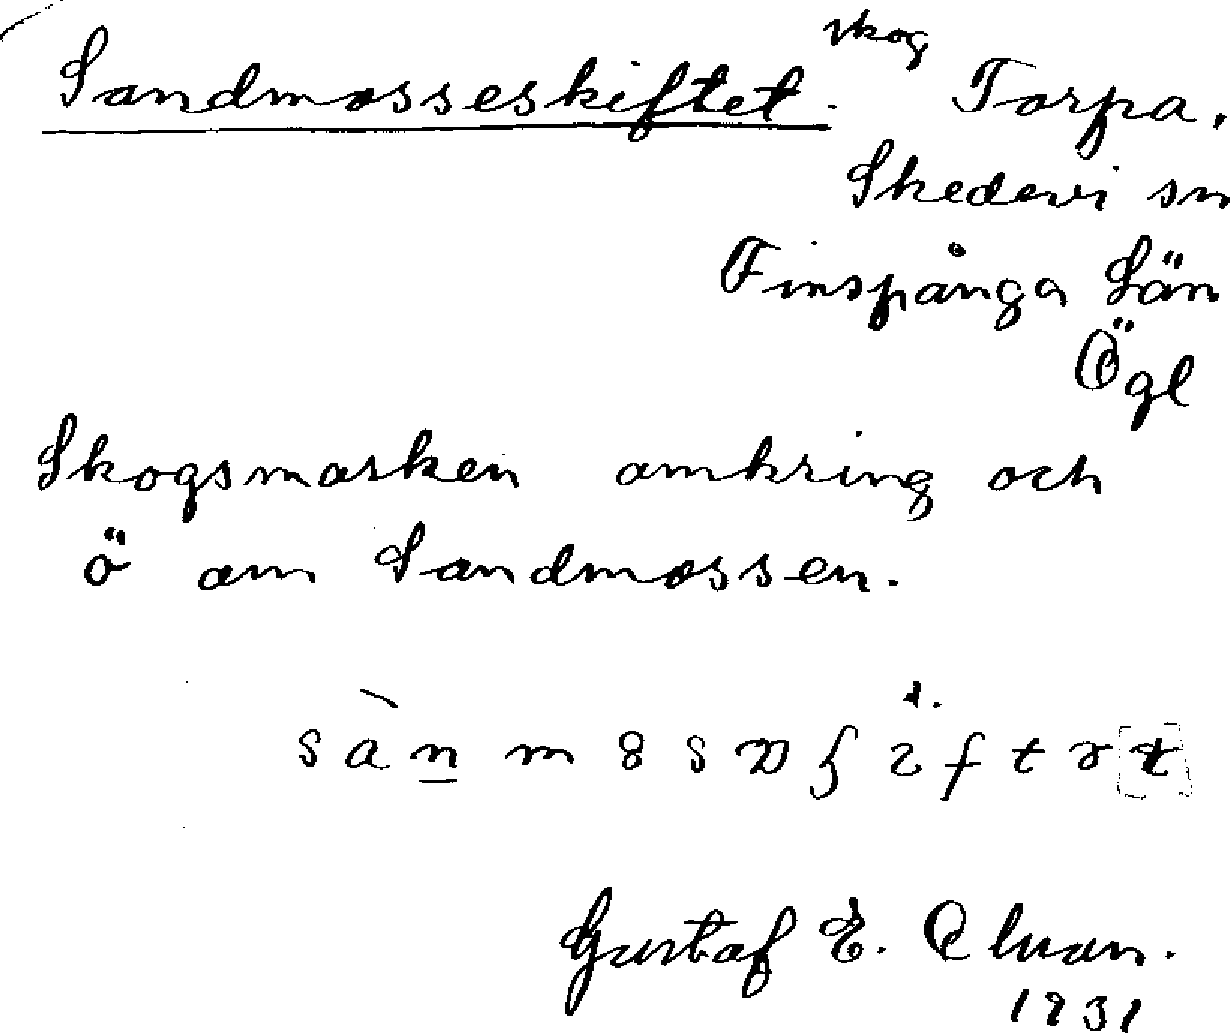 skog
Sandmosseskiftet. Torpa.
Skedevi sn
Finspånga Län
Ögl
Skogsmarken omkring och
ö om Sandmossen.
Gustaf E.
1931